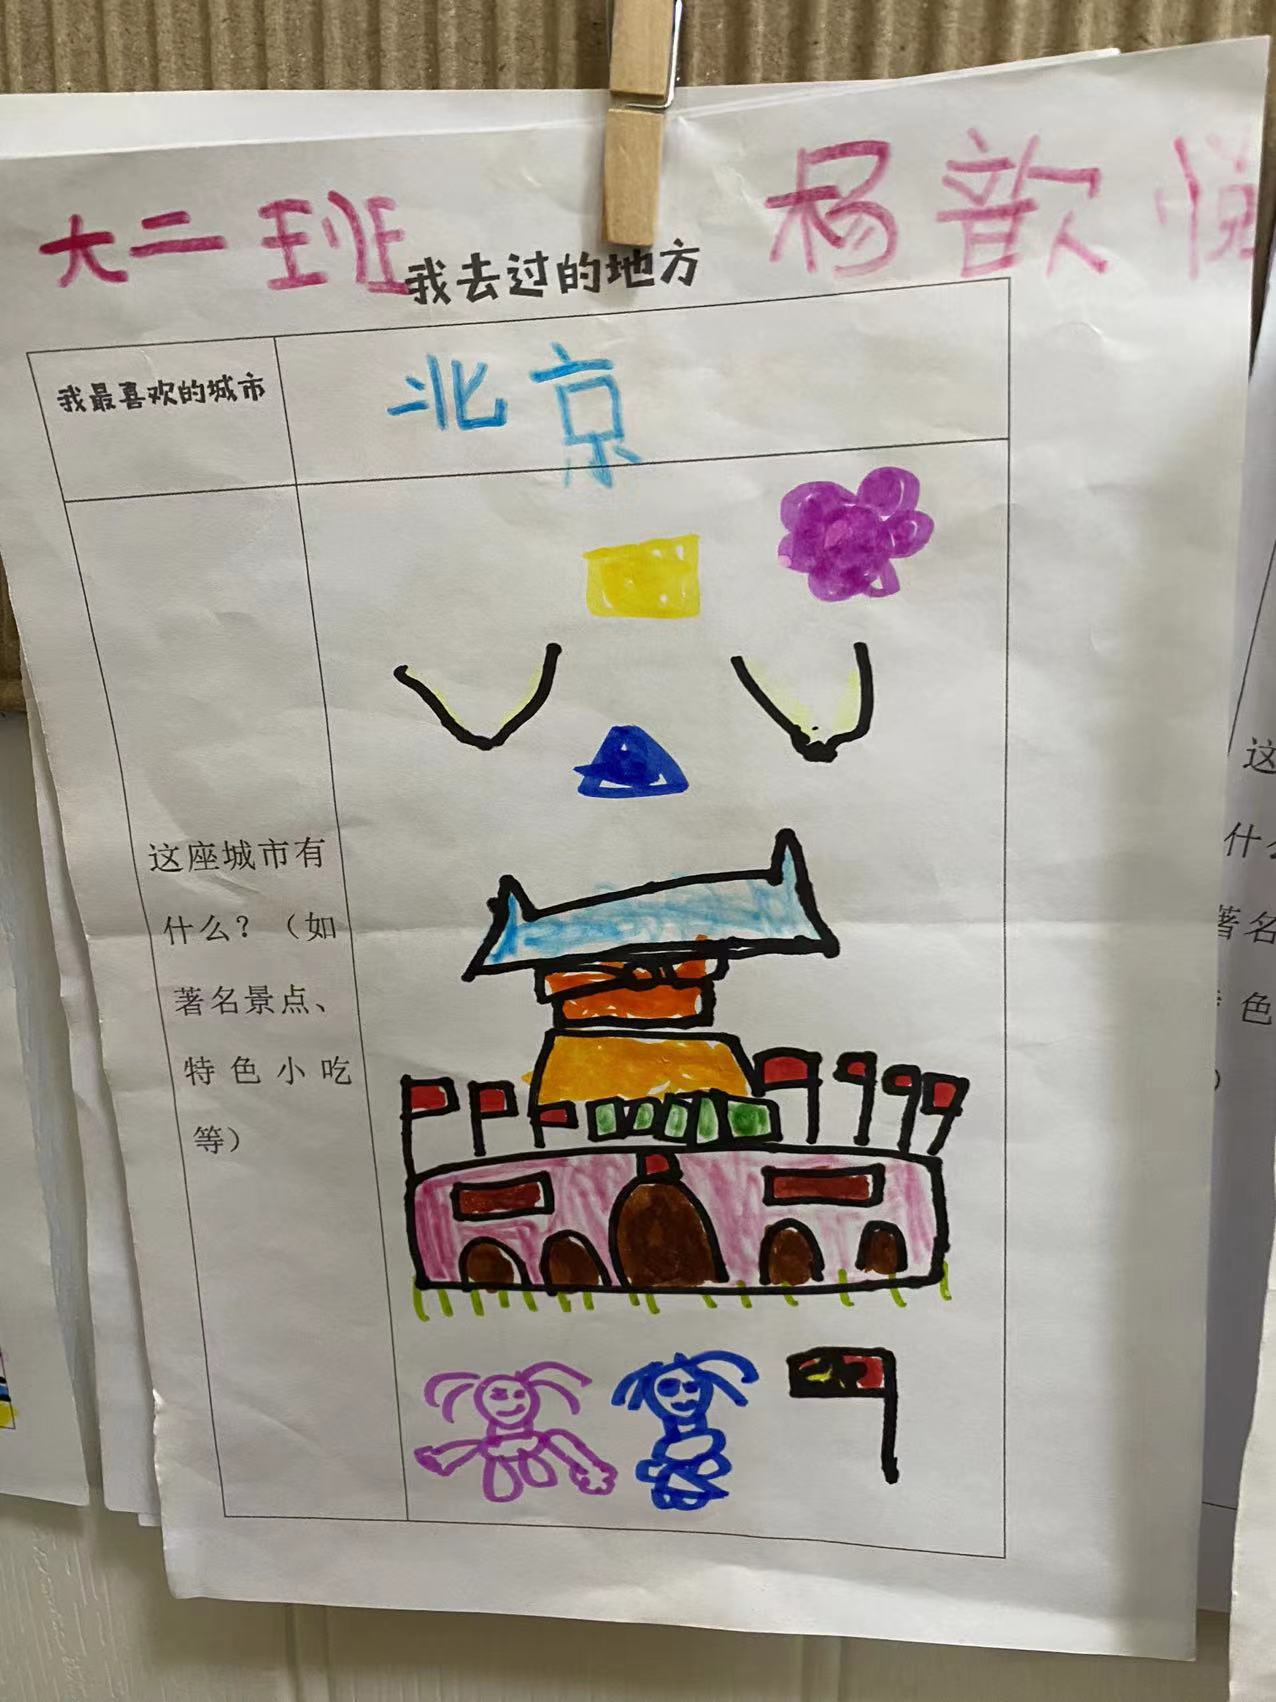 大二班 杨歆悦
我去过的地方
我最喜欢的城市
北京
这座城市有
什么？（如
著名景点、
特色小吃
等）
这
什么
著名
色
）